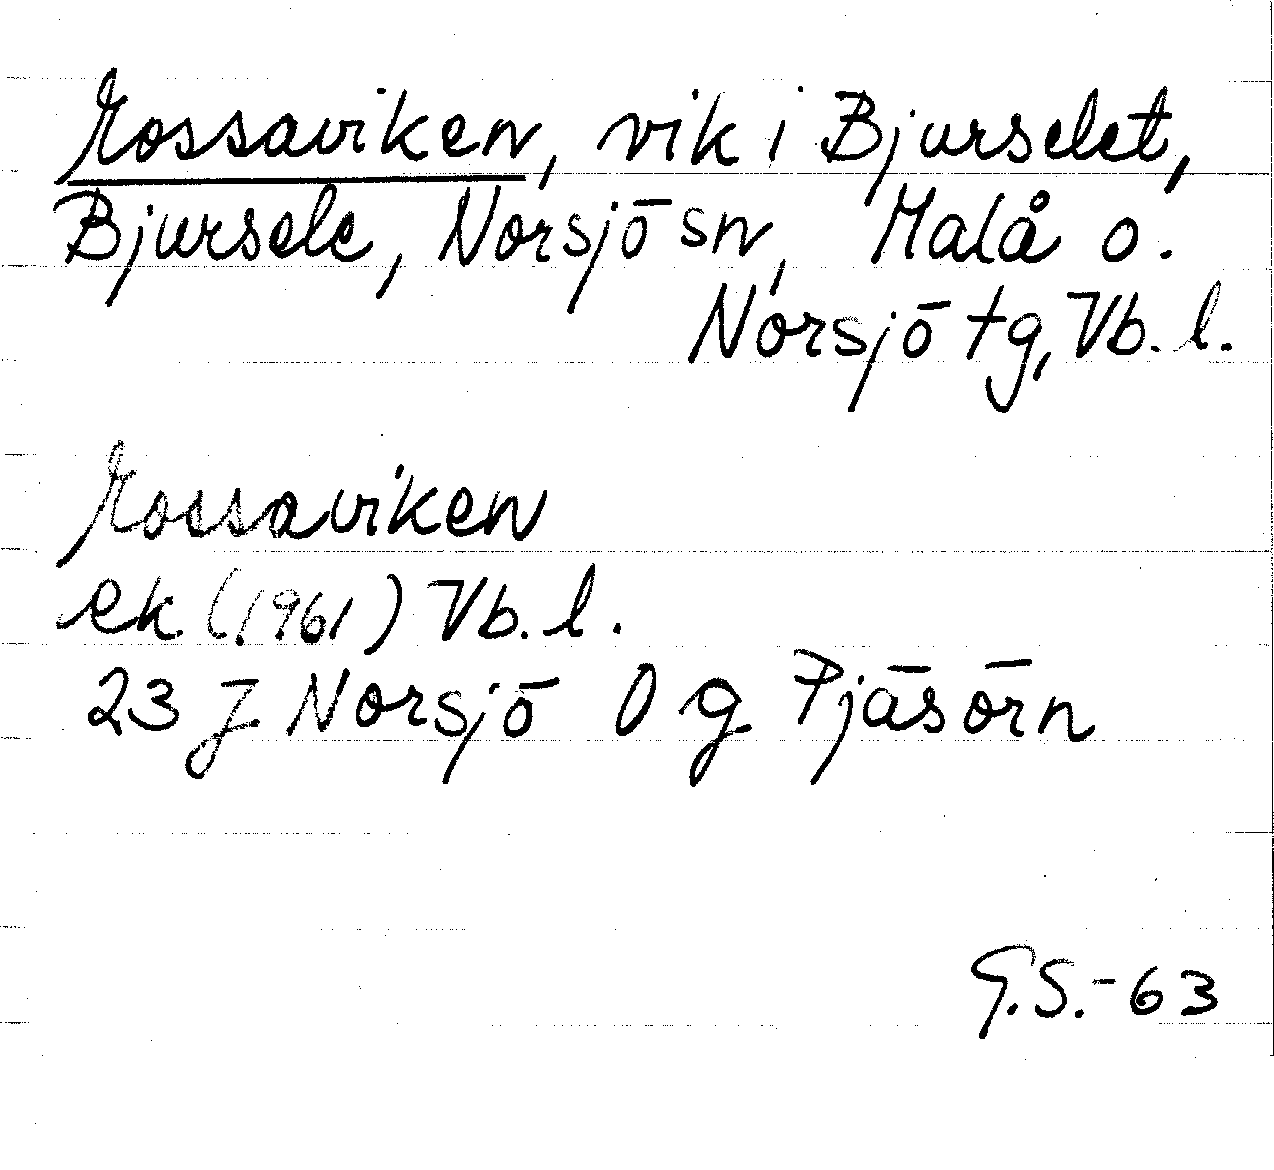 Kossaviken, vik i Bjurselet,
Bjursele, Norsjö sn, Malå o.
Norsjö tg, Vb. l.
Kossaviken
ek (1961) Vb. l.
23 J Norsjö 0 g Pjäsörn
G.S.-63